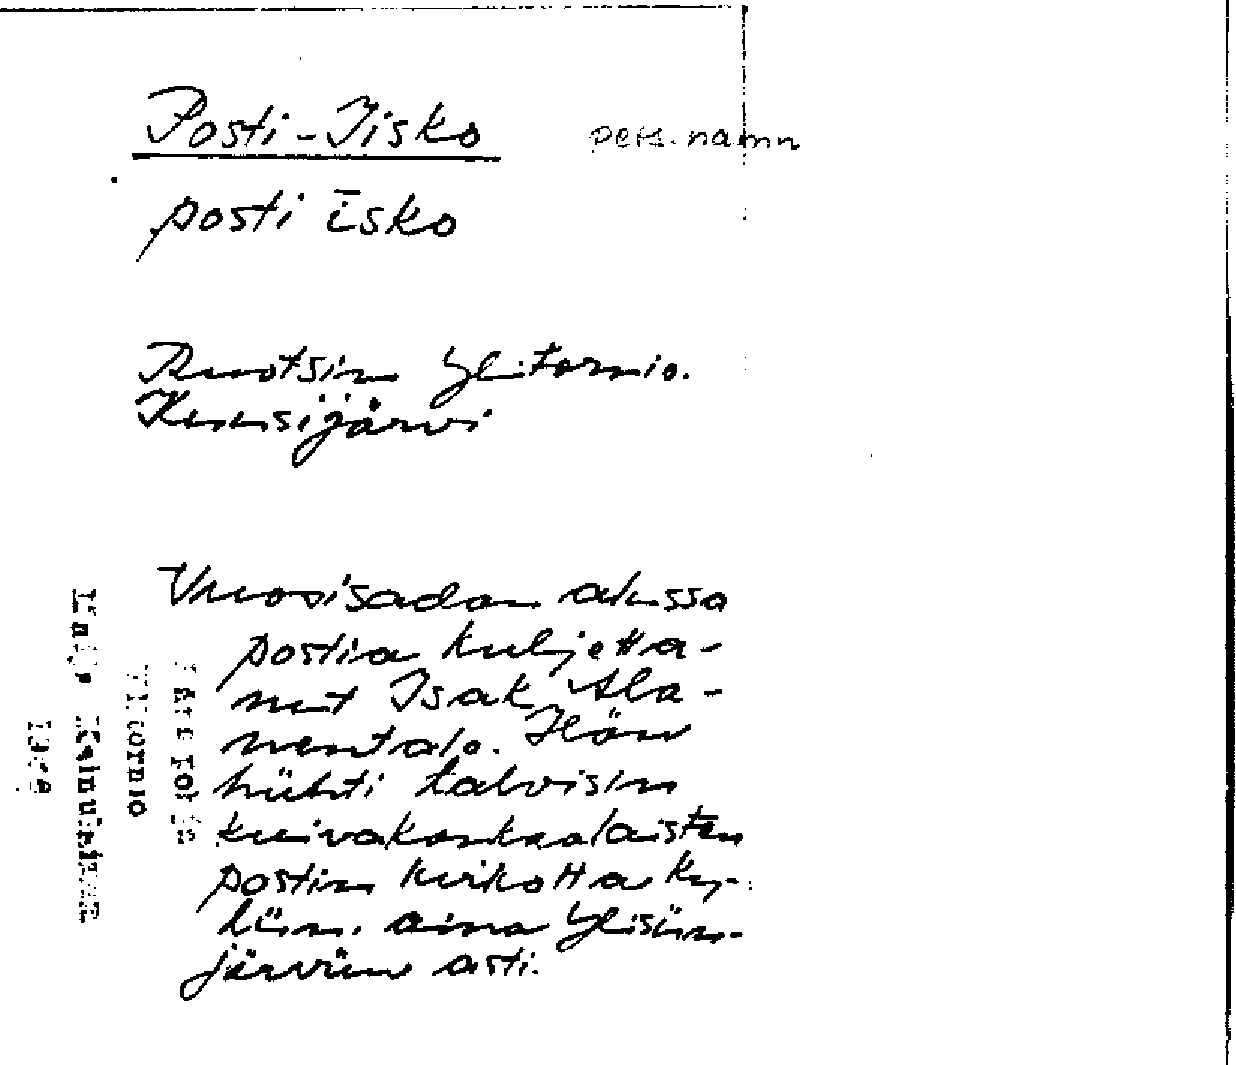 Posti-Iisko pers. namn
posti īsko
Ruotsin Ylitornio.
Kuusijärvi
Vuosisadan alussa
postia kuljetta-
nut Isak Ala-
nentalo. Hän
hiihti talvisin
kuivakankaalaisten
postin kirkolta ky-
liin. aina Ylisiin-
järviin asti.
Ylitornio